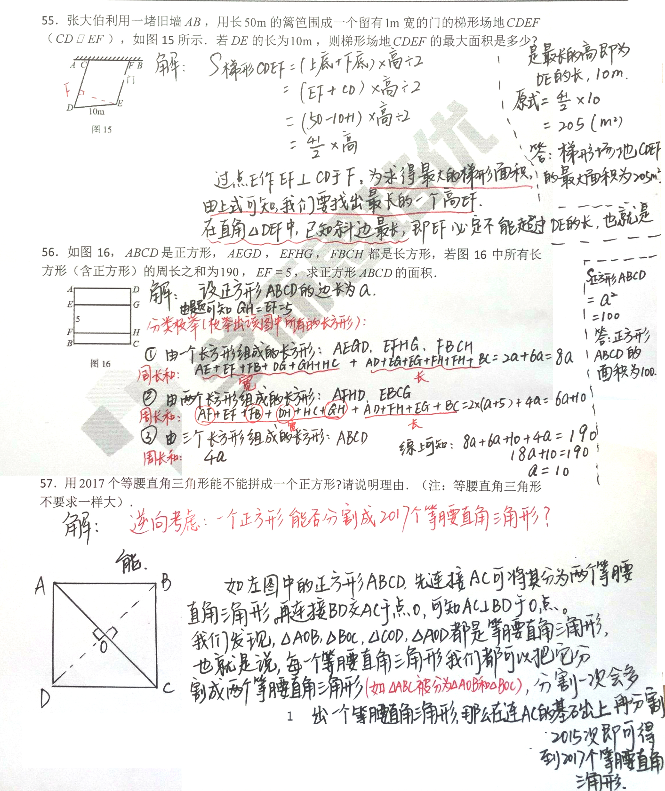 55. 张大伯利用一堵旧墙 AB，用长 50m 的篱笆围成一个留有 1m 宽的门的梯形场地 CDEF
（CD □ EF），如图 15 所示. 若 DE 的长为 10m，则梯形场地 CDEF 的最大面积是多少？
A C F B
D E
10m
图 15
解： S梯形CDEF =（上底+下底）×高÷2
=（EF + CD）×高÷2
=（50-10+1）×高÷2
= 41/2 ×高
过点E作EF⊥CD于F，为求得最大的梯形面积，
由上式可知，我们要找出最长的一个高EF.
在直角△DEF中，已知斜边最长，即EF必定不能超过DE的长，也就是
是最长的高即为
DE的长，10m.
原式= 41/2 ×10
= 205（m²）
答：梯形场地CDEF
的最大面积为205m²
56. 如图 16， ABCD 是正方形， AEGD ， EFHG ， FBCH 都是长方形，若图 16 中所有长
方形（含正方形）的周长之和为190， EF = 5，求正方形 ABCD 的面积.
A D
E G
5
F H
B C
图 16
解： 设正方形ABCD的边长为a.
由题可知GH=EF=5
分类枚举（枚举出该图中所有的长方形）：
① 由一个长方形组成的长方形： AEGD、EFHG、FBCH
周长和： AE+EF+FB+DG+GH+HC + AD+EG+EG+FH+FH+BC=2a+6a=8a
宽 长
② 由两个长方形组成的长方形： AFHD EBCG
周长和： AF+EF+FB+DH+HC+GH + AD+FH+EG+BC=2×(a+5)+4a=6a+10
宽 长
③ 由三个长方形组成的长方形： ABCD
周长和： 4a
综上可知：8a+6a+10+4a=190
18a+10=190
a=10
S正方形ABCD
= a²
=100
答：正方形
ABCD的
面积为100.
57. 用 2017 个等腰直角三角形能不能拼成一个正方形?请说明理由.（注：等腰直角三角形
不要求一样大）.
解： 逆向考虑：一个正方形能否分割成2017个等腰直角三角形？
能.
A B
O
D C
如左图中的正方形ABCD，先连接AC可将其分为两个等腰
直角三角形，再连接BD交AC于点O，可知AC⊥BD于O点.
我们发现，△AOB、△BOC、△COD、△AOD都是等腰直角三角形，
也就是说，每一个等腰直角三角形我们都可以把它分
割成两个等腰直角三角形（如△ABC被分为△AOB和△BOC），分割一次会多
出一个等腰直角三角形，那么在连AC的基础上再分割
2015次即可得
到2017个等腰直角
三角形.
1